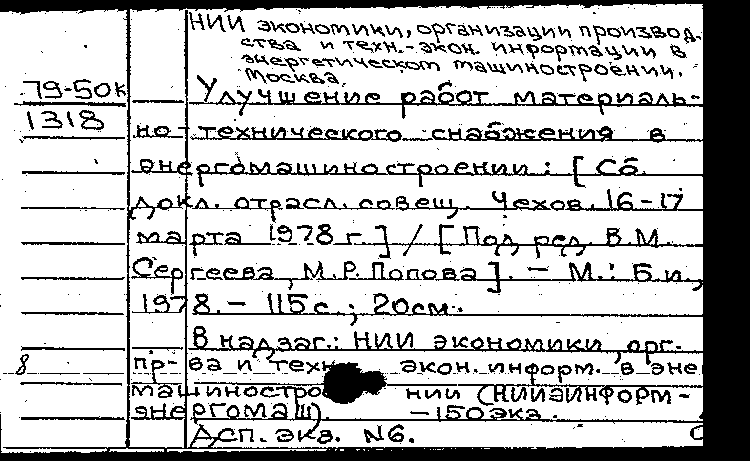 НИИ экономики, организации производ.
ства и техн.-экон. информации в
энергетическом машиностроении.
Москва.
79-50к
Улучшение работ материаль-
1318
но-технического снабжения в
энергомашиностроении: [Сб.
докл. отрасл. совещ. Чехов. 16-17
марта 1978 г.] / [Под ред. В.М.
Сергеева, М.Р. Попова]. - М.: Б.и.,
1978. - 115 с.; 20см.
В надзаг.: НИИ экономики, орг.
8
пр-ва и техн. экон. информ. в эне
машиностро нии (НИИЭИНФОРМ-
энергомаш). -150 экз.
АСП. экз. N6.